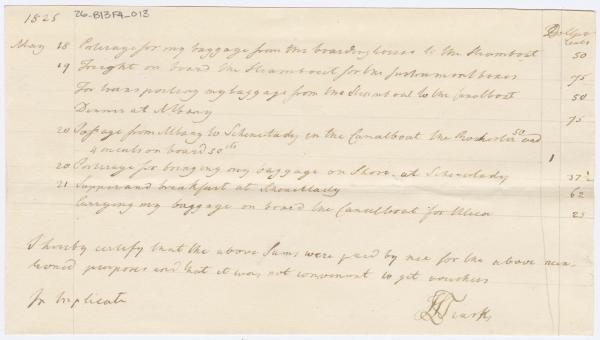 1825 26-B13F4-013
Dollars cents
May 18 Porterage for my baggage from the boarding house to the Steamboat 50
19 Freight on board the Steamboat for the Instrument boxes 75
For transporting my baggage from the Steamboat to the canalboat 50
Dinner at Albany 75
20 Passage from Albany to Schenectady in the Canalboat the Rochester 50 and
4 meals on board 50 cts 1
20 Porterage for bringing my baggage on Shore at Schenectady 37½
21 Supper and breakfast at Schenectady 62
Carrying my baggage on board the Canalboat for Utica 25
I hereby certify that the above Sums were paid by me for the above men
tioned purposes and that it was not convenient to get vouchers
In triplicate